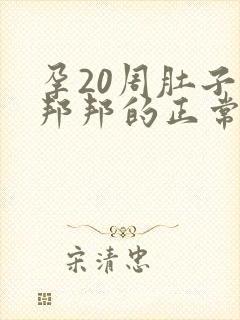 孕20周肚子
邦邦的正常
宋清忠